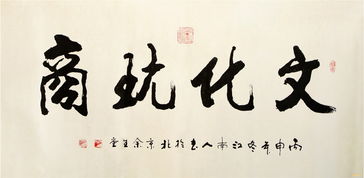 文化商
丙申年冬江南人书於北京余生堂